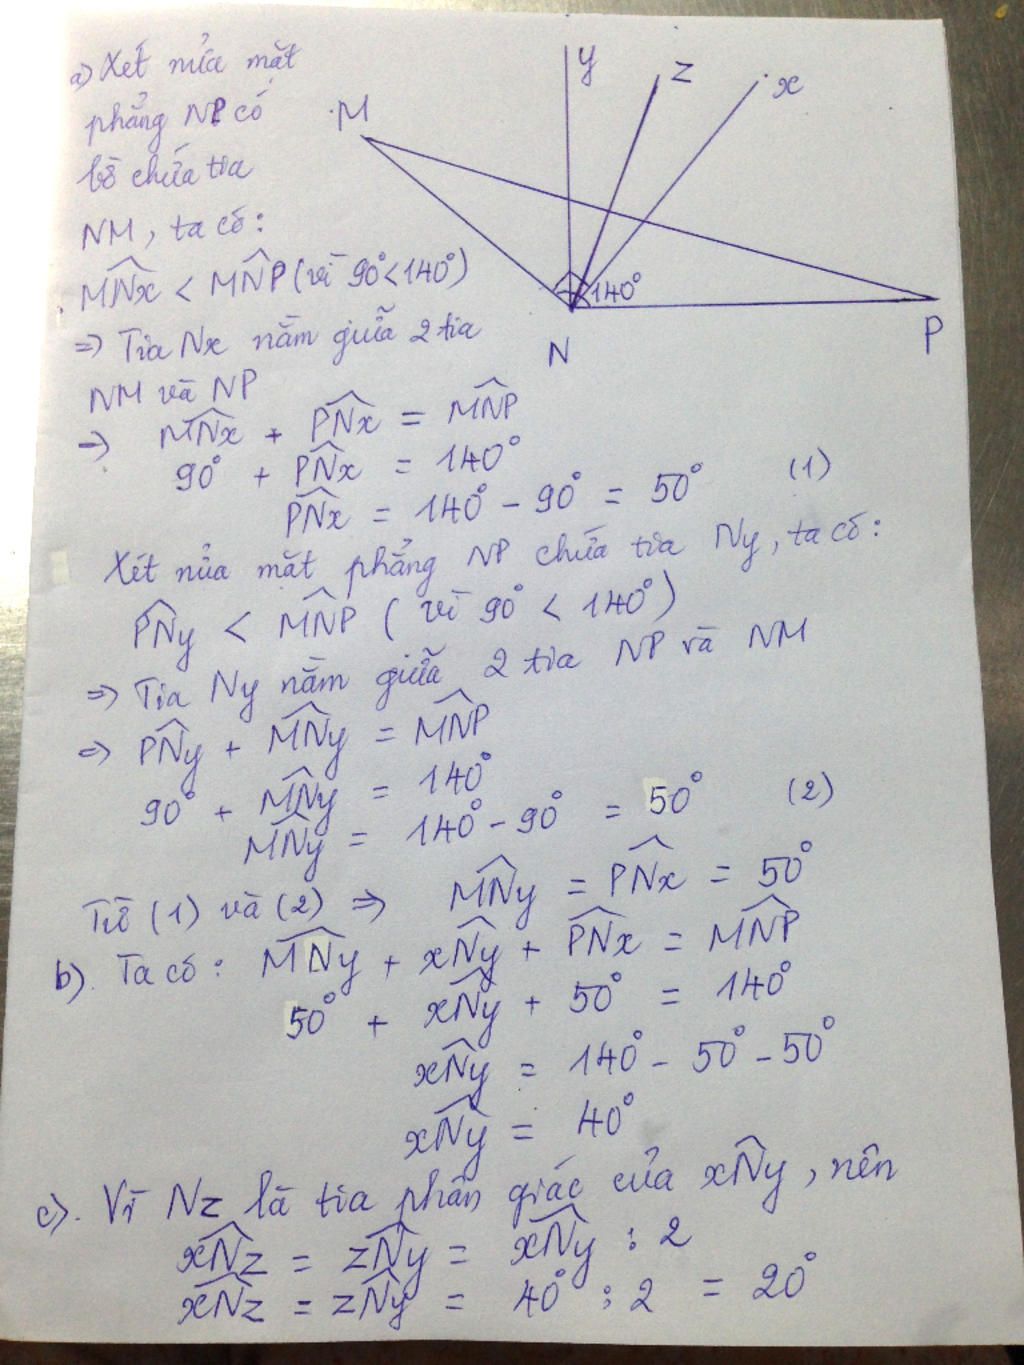 a) Xét nửa mặt
phẳng NP có
bờ chứa tia
NM, ta có:
M̂Nx < M̂NP (vì 90° < 140°)
=> Tia Nx nằm giữa 2 tia
NM và NP
=> M̂Nx + P̂Nx = M̂NP
90° + P̂Nx = 140°
P̂Nx = 140° - 90° = 50° (1)
Xét nửa mặt phẳng NP chứa tia Ny, ta có:
P̂Ny < M̂NP (vì 90° < 140°)
=> Tia Ny nằm giữa 2 tia NP và NM
=> P̂Ny + M̂Ny = M̂NP
90° + M̂Ny = 140°
M̂Ny = 140° - 90° = 50° (2)
Từ (1) và (2) => M̂Ny = P̂Nx = 50°
b). Ta có: M̂Ny + x̂Ny + P̂Nx = M̂NP
50° + x̂Ny + 50° = 140°
x̂Ny = 140° - 50° - 50°
x̂Ny = 40°
c). Vì Nz là tia phân giác của x̂Ny, nên
x̂Nz = ẑNy = x̂Ny : 2
x̂Nz = ẑNy = 40° : 2 = 20°
y
z
x
M
140°
N
P